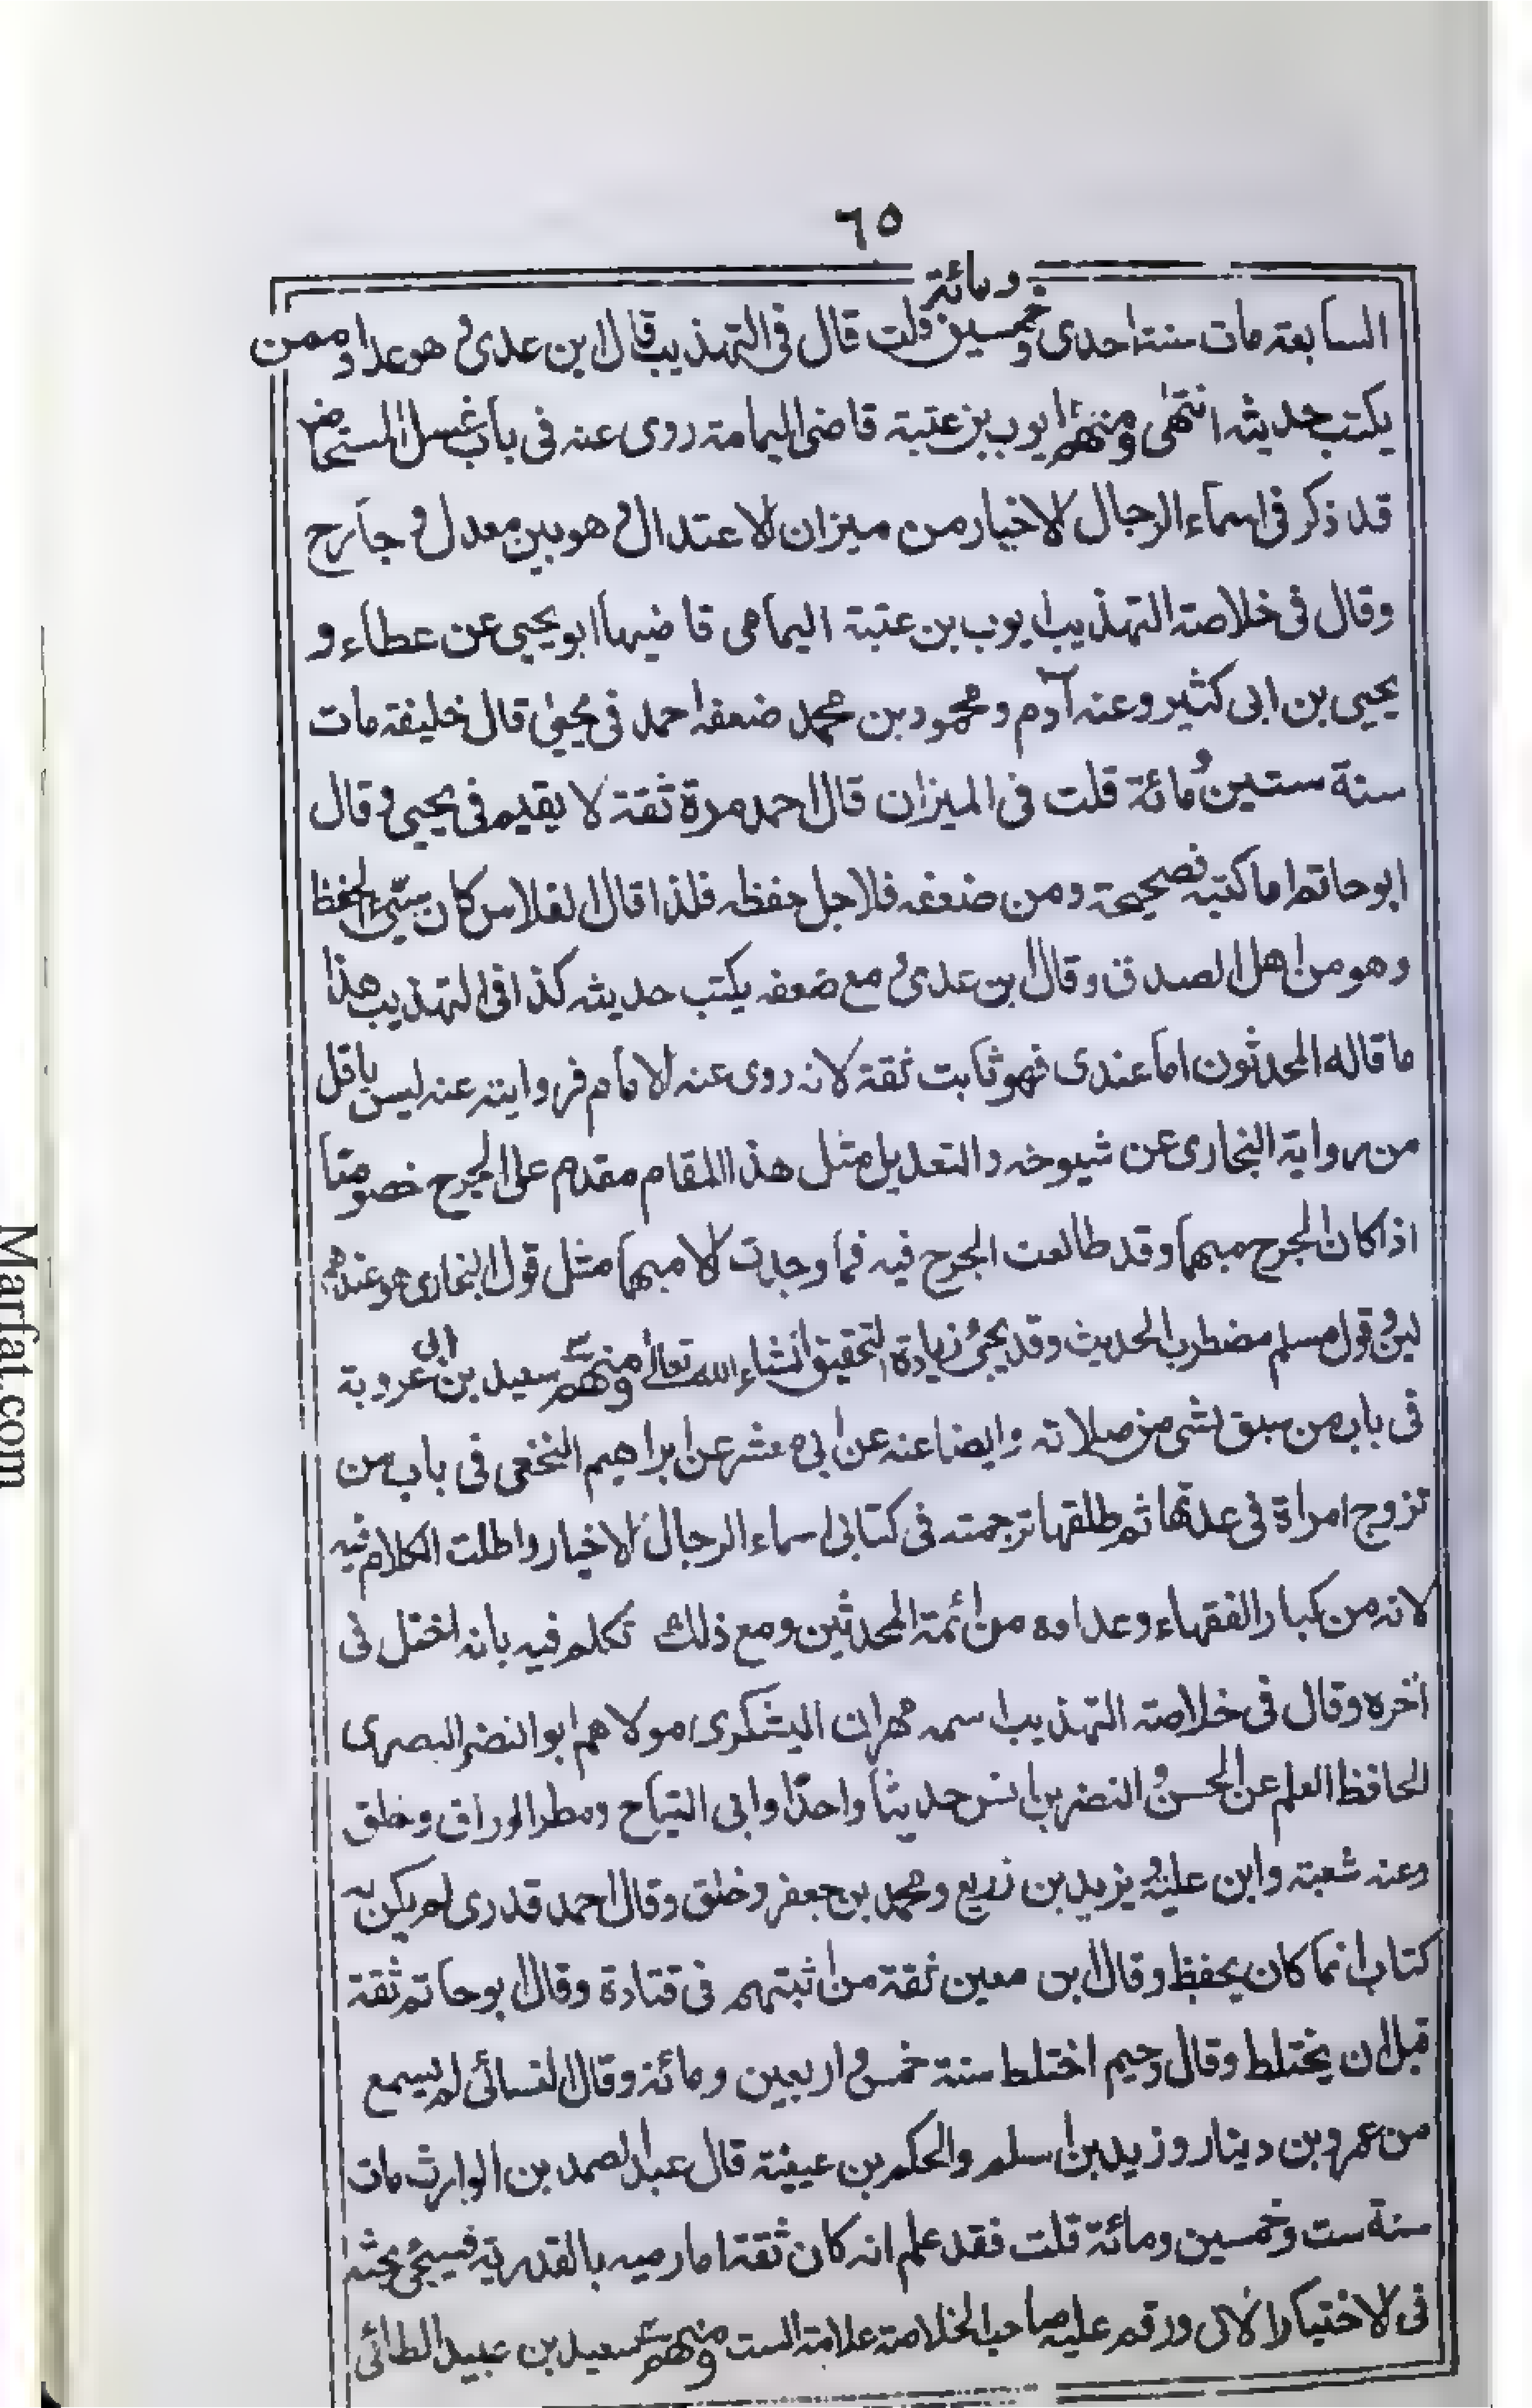 ٦٥
ومائة
السابعة مات سنة احدى وخمسين قلت قال فى التهذيب قال ابن عدى و هو عداد ممن
يكتب حديثه انتهى ومنهم ايوب بن عتبة قاضى اليمامة روى عنه فى باب غسل المستحاضة
قد ذكر فى اسماء الرجال الاخيار من ميزان الاعتدال و هو بين معدل و جارح
وقال فى خلاصة التهذيب ايوب بن عتبة اليمامى قاضيها ابو يحيى عن عطاء و
يحيى بن ابى كثير وعنه آدم و محمود بن محمد ضعفه احمد فى يحيى قال خليفة مات
سنة ستين و مائة قلت فى الميزان قال احمد مرة ثقة لا يقيم فى يحيى و قال
ابو حاتم اما كتبه فصحيحة ومن ضعفه فلاجل حفظه فلذا قال الفلاس كان سيئ الحفظ
وهو من اهل الصدق وقال ابن عدى و مع ضعفه يكتب حديثه كذا فى التهذيب هذا
ما قاله المحدثون اما عندى فهو ثابت ثقة لانه روى عنه الامام فروايته عنه ليس باقل
من رواية البخارى عن شيوخه والتعديل مثل هذا المقام مقدم على الجرح خصوصا
اذا كان الجرح مبهما وقد طالعت الجرح فيه فما وجدت الا مبهما مثل قول البخارى هو عندهم
لين و قول مسلم مضطرب الحديث وقد يجئ زيادة التحقيق انشاء الله تعالى ومنهم سعيد بن ابى عروبة
فى باب من سبق بشى من صلاته وايضا عنه عن ابى معشر عن ابراهيم النخعى فى باب من
تزوج امراة فى عدتها ثم طلقها ترجمته فى كتابى اسماء الرجال الاخيار واطلت الكلام فيه
لانه من كبار الفقهاء وعداده من ائمة المحدثين ومع ذلك تكلم فيه بانه اختل فى
آخره وقال فى خلاصة التهذيب اسمه مهران اليشكرى مولاهم ابو النضر البصرى
الحافظ العلم عن الحسن و النضر بن انس حديثا واحدا وابى التياح ومطر الوراق وخلق
وعنه شعبة وابن علية و يزيد بن زريع ومحمد بن جعفر وخلق وقال احمد قدرى لم يكن له
كتاب انما كان يحفظ وقال ابن معين ثقة من اثبتهم فى قتادة وقال ابو حاتم ثقة
قبل ان يختلط وقال دحيم اختلط سنة خمس و اربعين ومائة وقال النسائى لم يسمع
من عمرو بن دينار وزيد بن اسلم والحكم بن عيينة قال عبد الصمد بن الوارث مات
سنة ست وخمسين ومائة قلت فقد علم انه كان ثقة اما رميه بالقدرية فسيجئ بحثه
فى الاختيار الاول ورقم عليه صاحب الخلاصة علامة الست ومنهم سعيد بن عبيد الطائى
Marfat.com